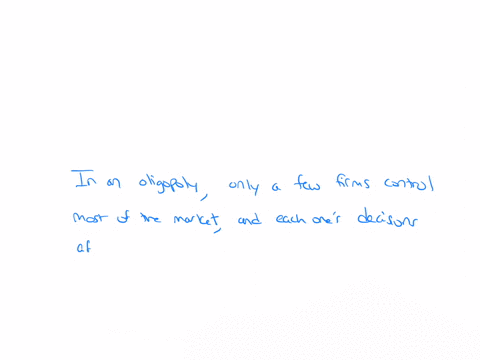 In an oligopoly, only a few firms control
most of the market, and each one's decisions
af